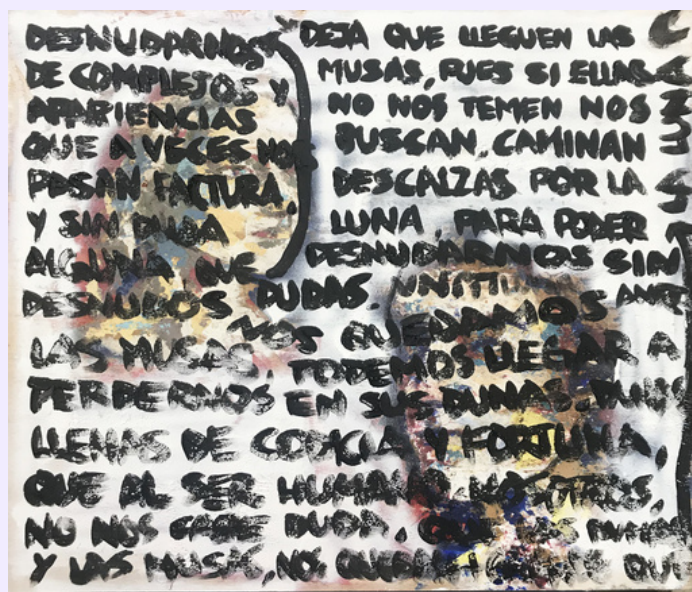 DESNUDARNOS
DE COMPLEJOS Y
APARIENCIAS
QUE A VECES NOS
PASAN FACTURA,
Y SIN DUDA
ALGUNA QUE
DESNUDOS
DEJA QUE LLEGUEN LAS
MUSAS, PUES SI ELLAS
NO NOS TEMEN NOS
BUSCAN, CAMINAN
DESCALZAS POR LA
LUNA, PARA PODER
DESNUDARNOS SIN
DUDAS.
NOS QUEDAMOS
LAS MUSAS, PODEMOS LLEGAR A
PERDERNOS EN SUS DUNAS. DUNAS
LLENAS DE CODICIA Y FORTUNA,
QUE AL SER HUMANO, NOSOTROS,
NO NOS CABE DUDA.
Y LAS MUSAS, NOS QUE